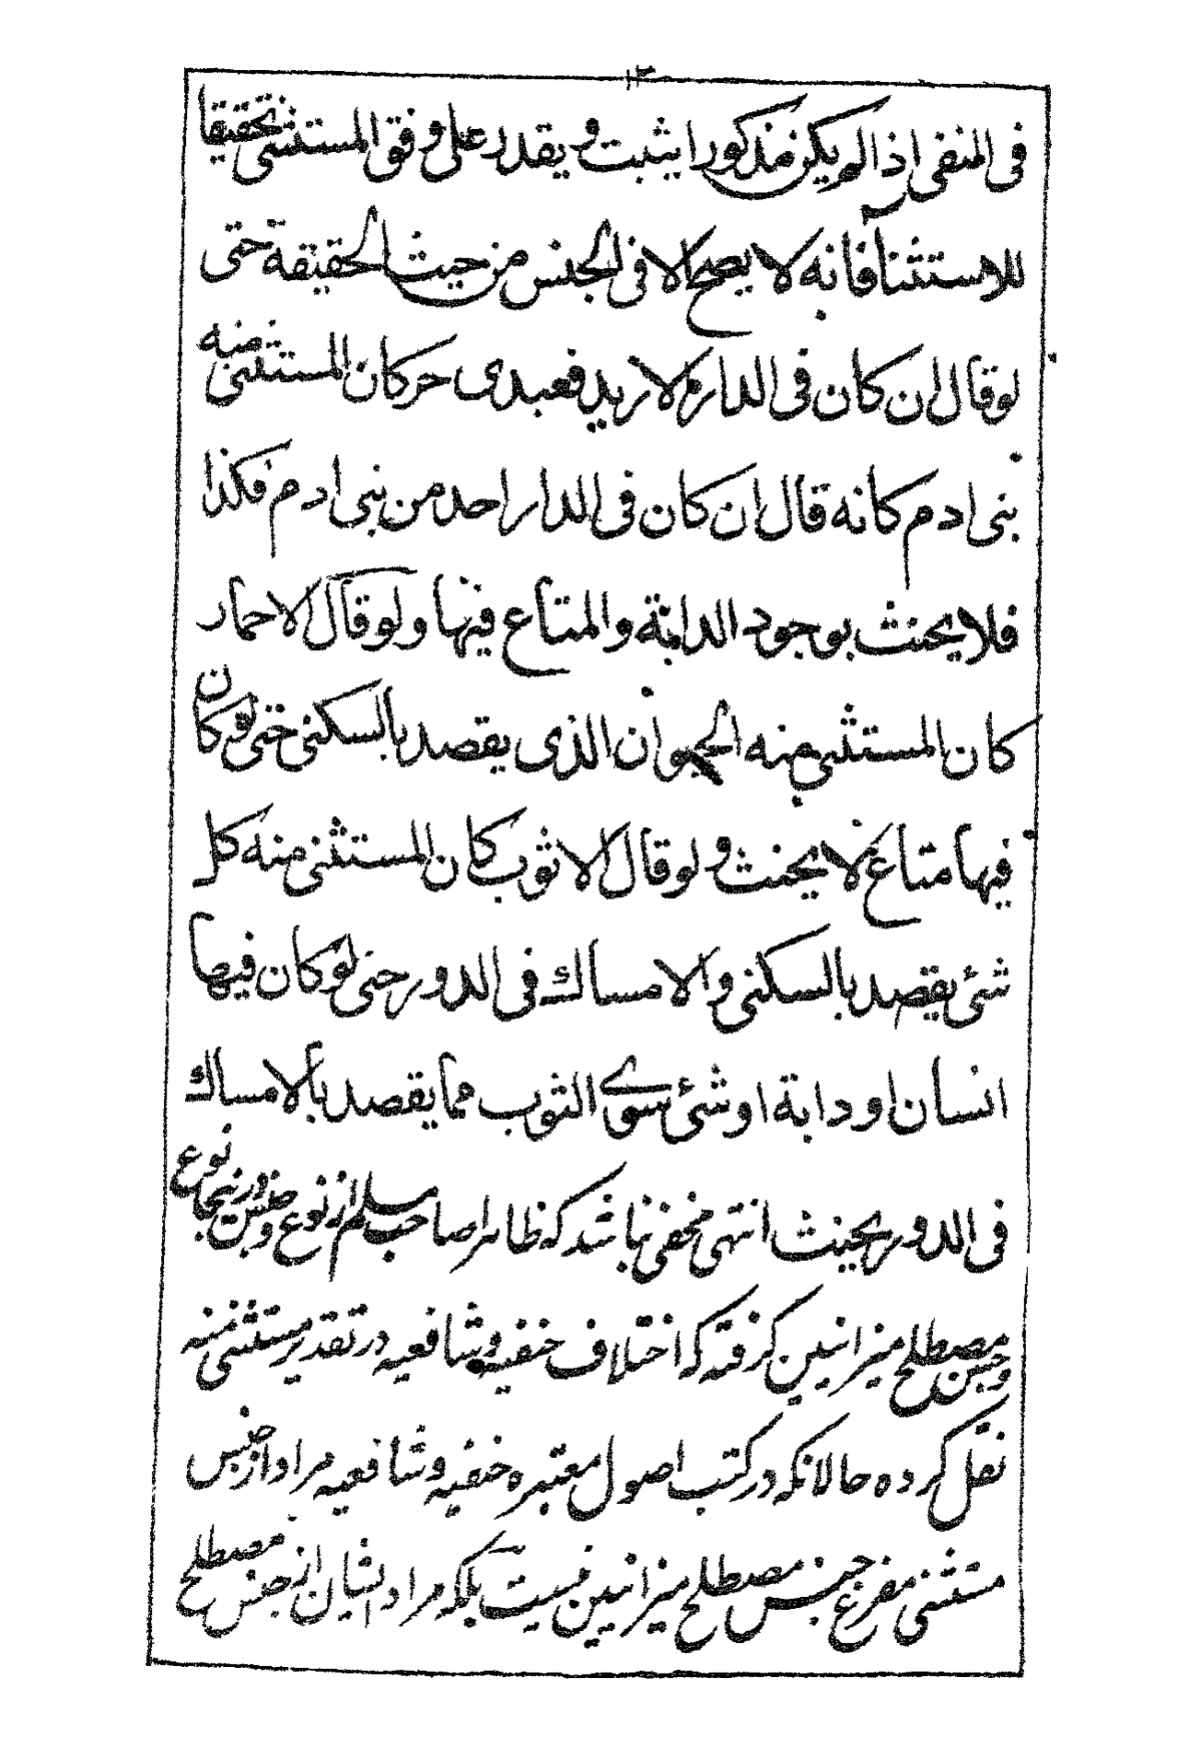 ١٢
فى المنفى اذا لم يكن مذكورا يثبت و يقدر على وفق المستثنى تحقيقا
للاستثنا فانه لا يصح الا فى الجنس من حيث الحقيقة حتى
لو قال ان كان فى الدارم الا زيد فعبدى حر كان المستثنى منه
بنى ادم كانه قال ان كان فى الدار احد من بنى ادم فكذا
فلا يحنث بوجود الدابة والمتاع فيها ولو قال الا حمار
كان المستثنى منه الحيوان الذى يقصد بالسكنى حتى لو كان
فيها متاع لا يحنث و لو قال الا ثوب كان المستثنى منه كل
شئ يقصد بالسكنى والامساك فى الدور حتى لو كان فيها
انسان او دابة او شئ سوے الثوب مما يقصد بالامساك
فى الدور يحنث انتهى مخفى نباشد كه ظاهرا صاحب مسلم از نوع و جنس درينجا نوع
و جنس مصطلح ميزانيين گرفته كه اختلاف حنفيه و شافعيه در تقدير مستثنى منه
نقل كرده حالانكه در كتب اصول معتبره حنفيه و شافعيه مراد از جنس
مستثنى مفرغ جنس مصطلح ميزانيين نيست بلكه مراد ايشان از جنس مصطلح